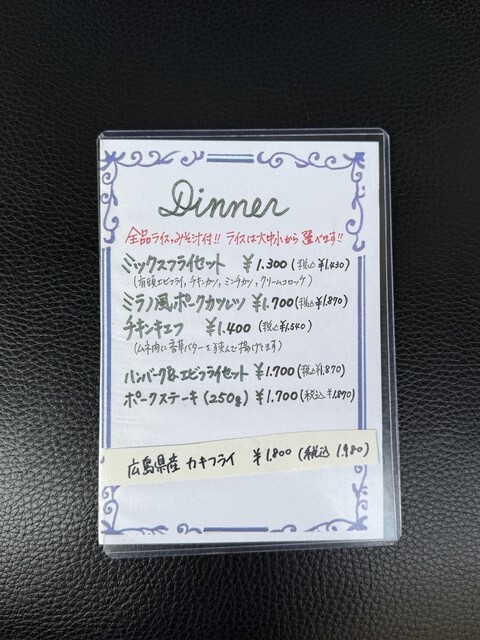 Dinner
全品ライス,みそ汁付!! ライスは大中小から選べます!!
ミックスフライセット ¥1.300(税込¥1,430)
(有頭エビフライ,チキンカツ,ミンチカツ,クリームコロッケ)
ミラノ風ポークカツレツ ¥1.700(税込¥1,870)
チキンキエフ ¥1.400 (税込¥1,540)
(ムネ肉に香草バターを挟んで揚げてます)
ハンバーグ&エビフライセット ¥1.700(税込¥1,870)
ポークステーキ(250g) ¥1.700(税込¥1,870)
広島県産 カキフライ ¥1.800(税込 1.980)